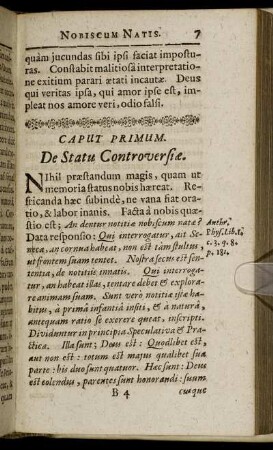 NOBISCUM NATIS. 7
quàm jucundas sibi ipsi faciat impostu-
ras. Constabit malitiosâ interpretatio-
ne exitium parari ætati incautæ. Deus
qui veritas ipsa, qui amor ipse est, im-
pleat nos amore veri, odio falsi.
CAPUT PRIMUM.
De Statu Controversiæ.
NIhil præstandum magis, quam ut
memoria status nobis hæreat. Re-
fricanda hæc subindè, ne vana fiat ora-
tio, & labor inanis. Facta à nobis quæ-
stio est; An dentur notitiæ nobiscum natæ?
Data responsio: Qui interrogatur, ait Se-
neca, an cornua habeat, non est tàm stultus,
ut frontem suam tentet. Nostra secus est sen-
tentia, de notitiis innatis. Qui interroga-
tur, an habeat illas, tentare debet & explora-
re animam suam. Sunt verò notitiæ istæ ha-
bitus, à primâ infantiâ insiti, & à naturâ,
antequam ratio se exerere queat, inscripti.
Dividuntur in principia Speculativa & Pra-
ctica. Illa sunt; Deus est: Quodlibet est,
aut non est: totum est majus qualibet sua
parte: his duo sunt quatuor. Hæc sunt: Deus
est colendus, parentes sunt honorandi: suum
B 4 cuique
Authr.
Phys. Lib. 1.
c. 3. q. 8.
p. 181.